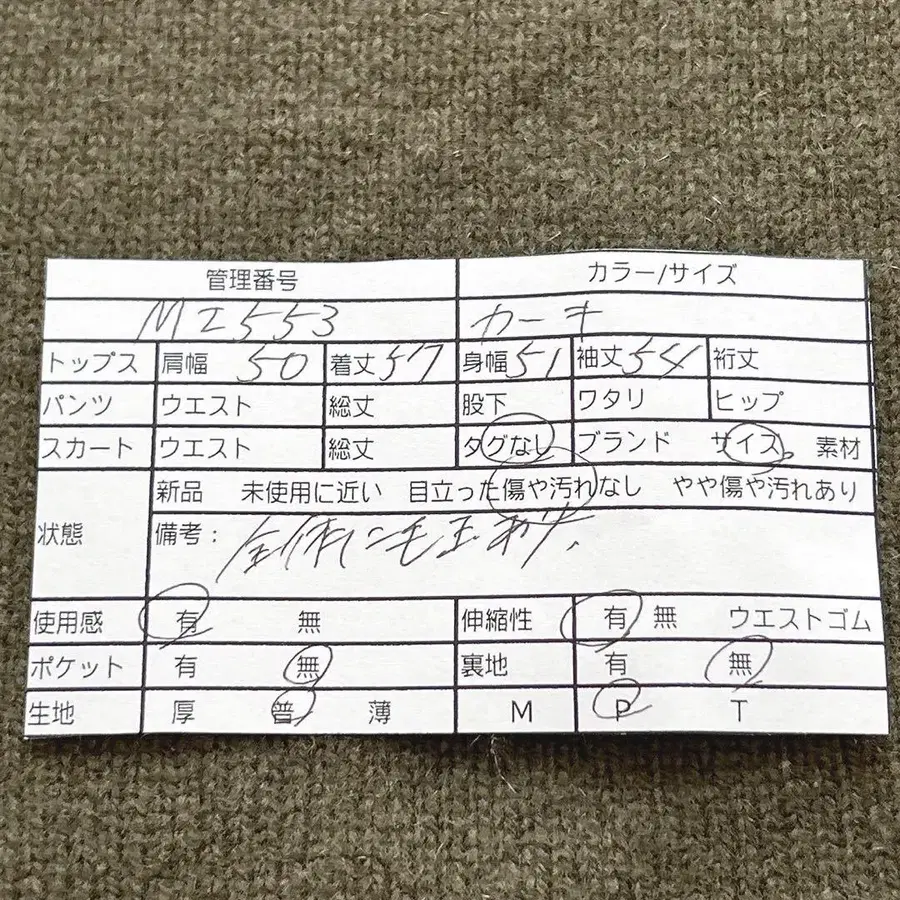 管理番号 カラー/サイズ
MI553 カーキ
トップス 肩幅 50 着丈 57 身幅 51 袖丈 54 裄丈
パンツ ウエスト 総丈 股下 ワタリ ヒップ
スカート ウエスト 総丈 タグなし ブランド サイズ 素材
状態 新品 未使用に近い 目立った傷や汚れなし やや傷や汚れあり
備考： 全体に毛玉
使用感 有 無 伸縮性 有 無 ウエストゴム
ポケット 有 無 裏地 有 無
生地 厚 普 薄 M P T